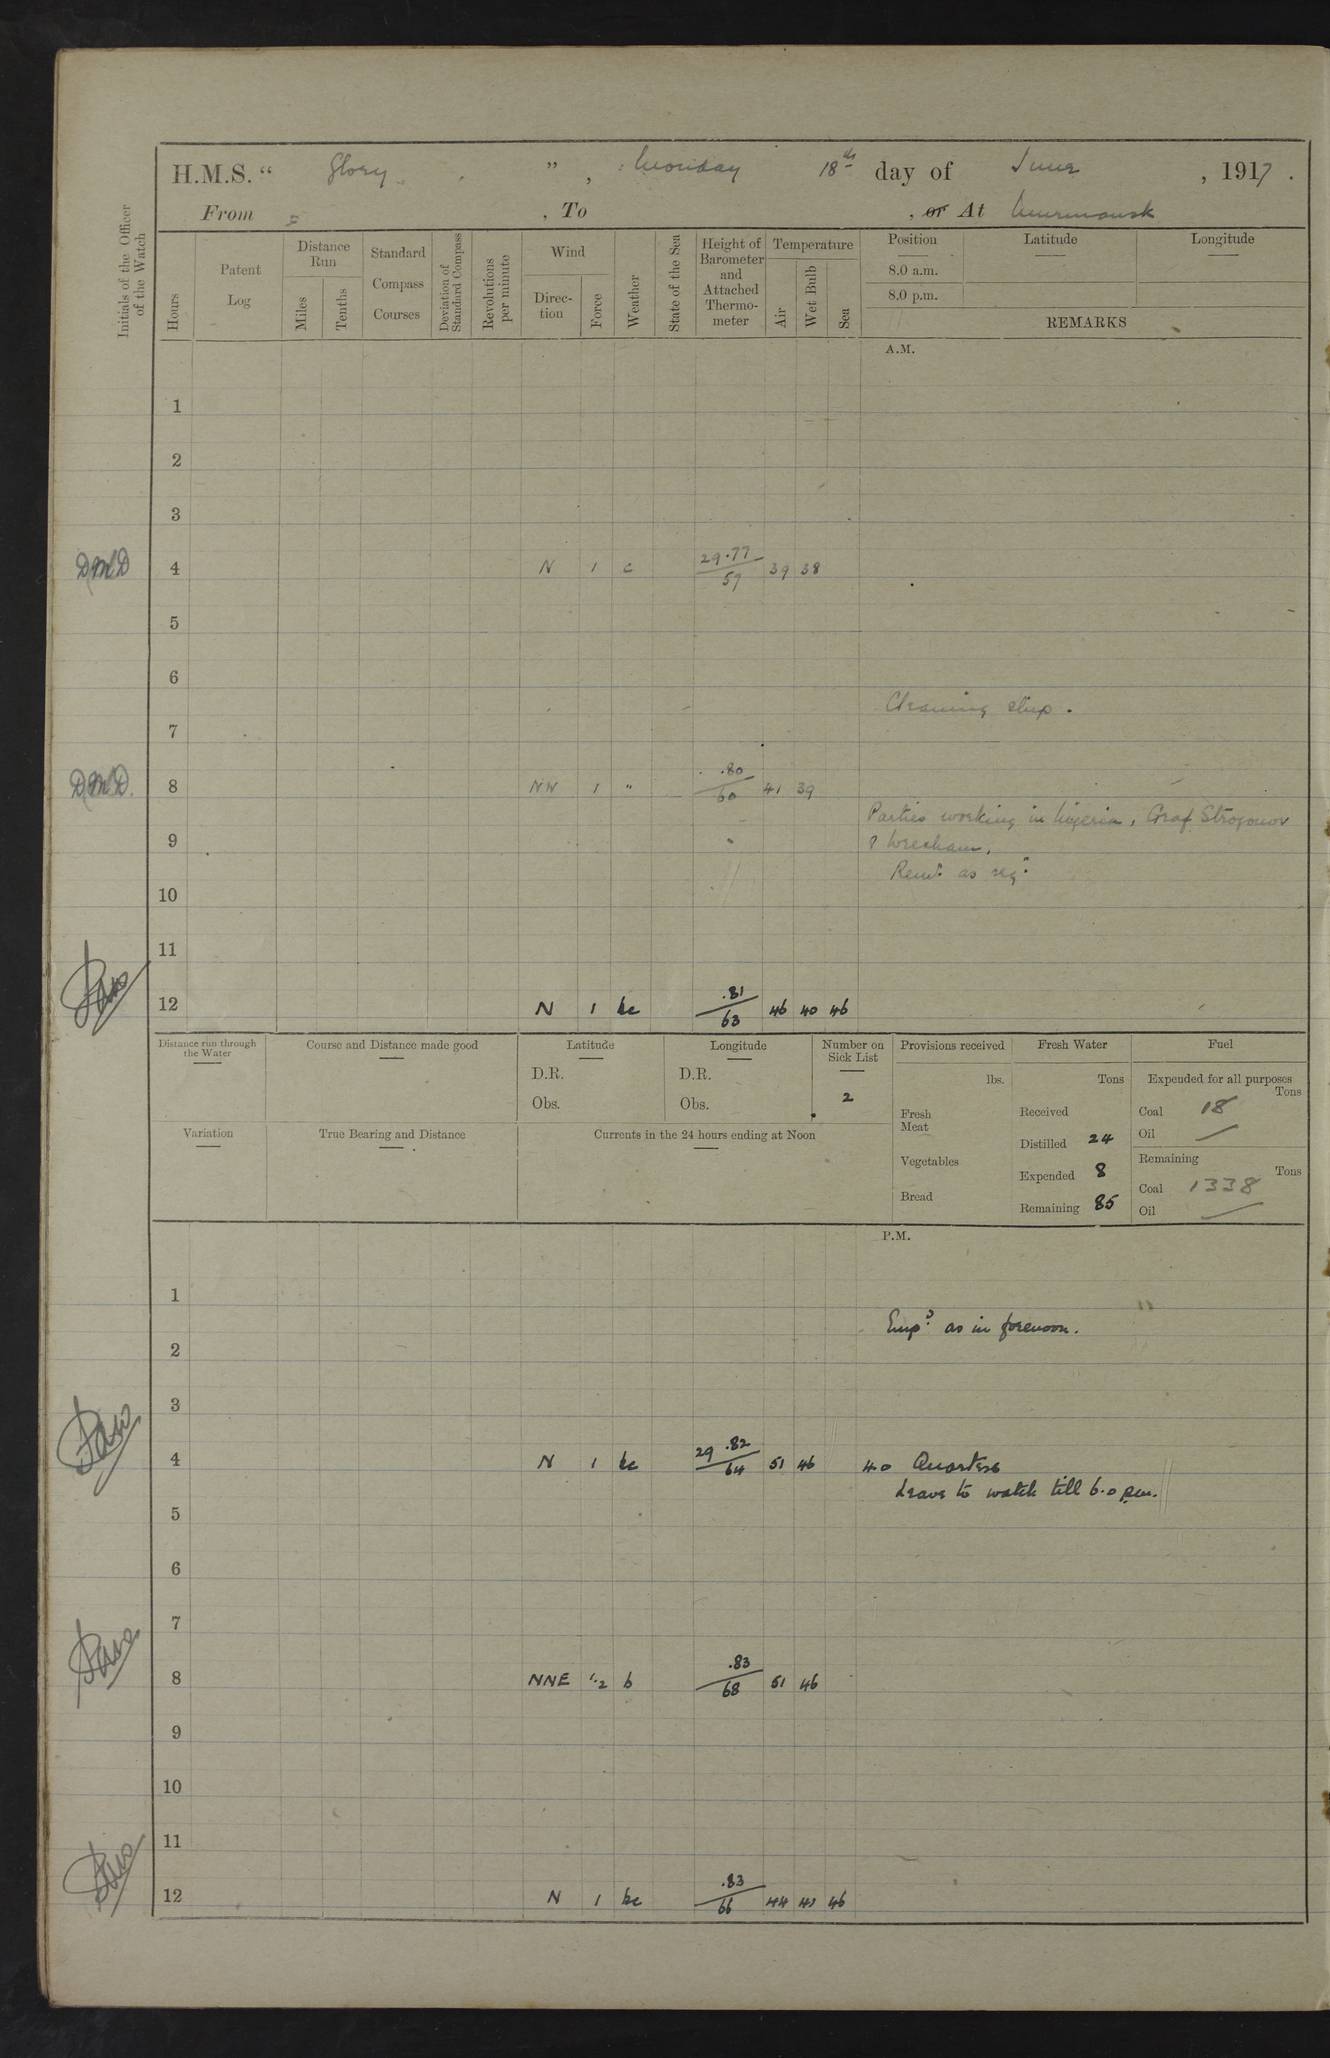 H.M.S. “ Glory ” , Monday 18th day of June , 1917 .
From , To , or At Murmansk
Initials of the Officer of the Watch
Hours
Patent Log
Distance Run
Miles
Tenths
Standard Compass Courses
Deviation of Standard Compass
Revolutions per minute
Wind
Direc-tion
Force
Weather
State of the Sea
Height of Barometer and Attached Thermo-meter
Temperature
Air
Wet Bulb
Sea
Position Latitude Longitude
8.0 a.m.
8.0 p.m.
REMARKS
A.M.
1
2
3
DMD 4 N 1 c 29.77/59 39 38
5
6
Cleaning ship.
7
DMD. 8 NW 1 " .80/60 41 39
Parties working in Nigeria, Graf Strogonov
9 & Wrexham.
Remr. as req.
10
11
12 N 1 bc .81/63 46 40 46
Distance run through the Water
Course and Distance made good
Latitude
D.R.
Obs.
Longitude
D.R.
Obs.
Number on Sick List
2
Provisions received
lbs.
Fresh Meat
Vegetables
Bread
Fresh Water
Tons
Received
Distilled 24
Expended 8
Remaining 85
Fuel
Expended for all purposes
Tons
Coal 18
Oil —
Remaining
Tons
Coal 1338
Oil —
Variation
True Bearing and Distance
Currents in the 24 hours ending at Noon
P.M.
1
Empd. as in forenoon.
2
3
4 N 1 bc 29.82/64 51 46 4.0 Quarters
Leave to watch till 6.0 pm.
5
6
7
8 NNE 1.2 b .83/68 51 46
9
10
11
12 N 1 bc .83/66 44 41 46